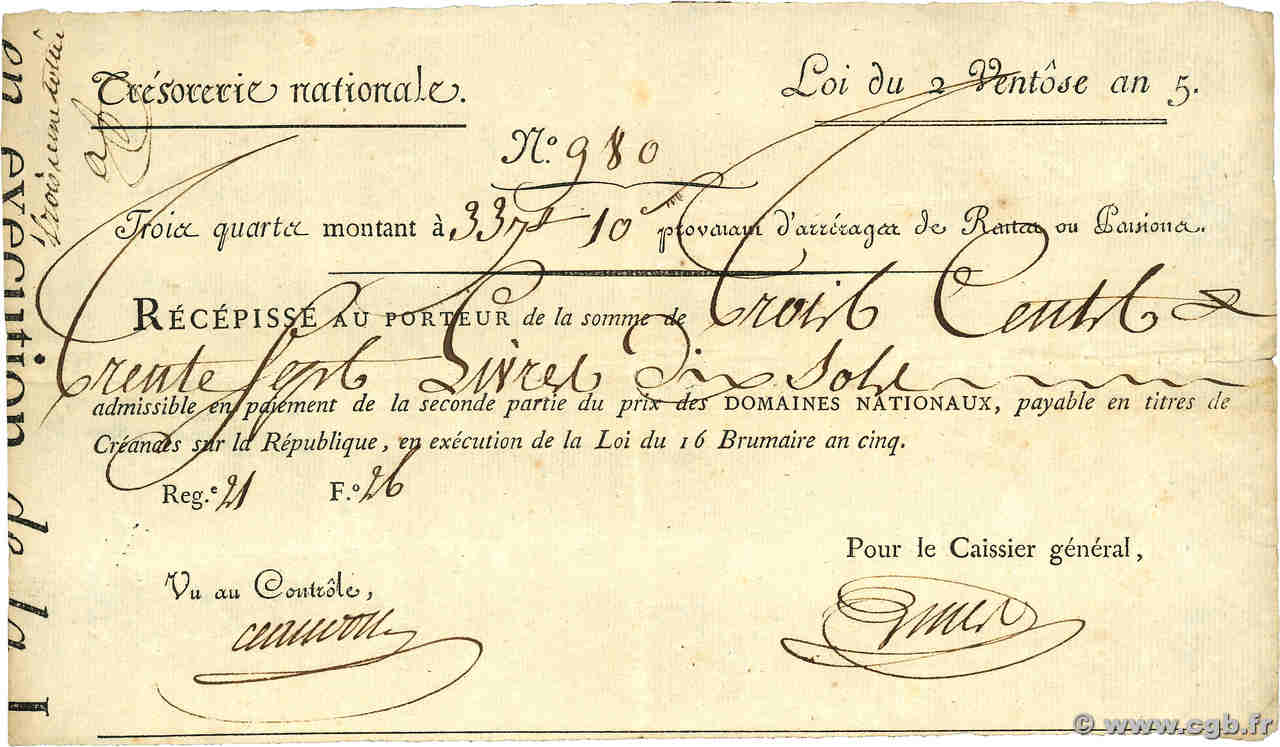 Trésorerie nationale.
Loi du 2 Ventôse an 5.
N.o 980
Trois quarts montant à 337 ₶ 10 s provenant d'arrérages de Rentes ou Pensions.
RÉCÉPISSÉ AU PORTEUR de la somme de Trois Cents
trente Sept Livres Dix Sols
admissible en paiement de la seconde partie du prix des DOMAINES NATIONAUX, payable en titres de
Créances sur la République, en exécution de la Loi du 16 Brumaire an cinq.
Reg.e 21 F.o 26
Pour le Caissier général,
Vu au Contrôle,
en exécution de la l
© www.cgb.fr